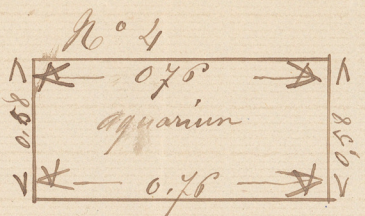 No 4
0,76
0.58
aquariun
0,58
0.76